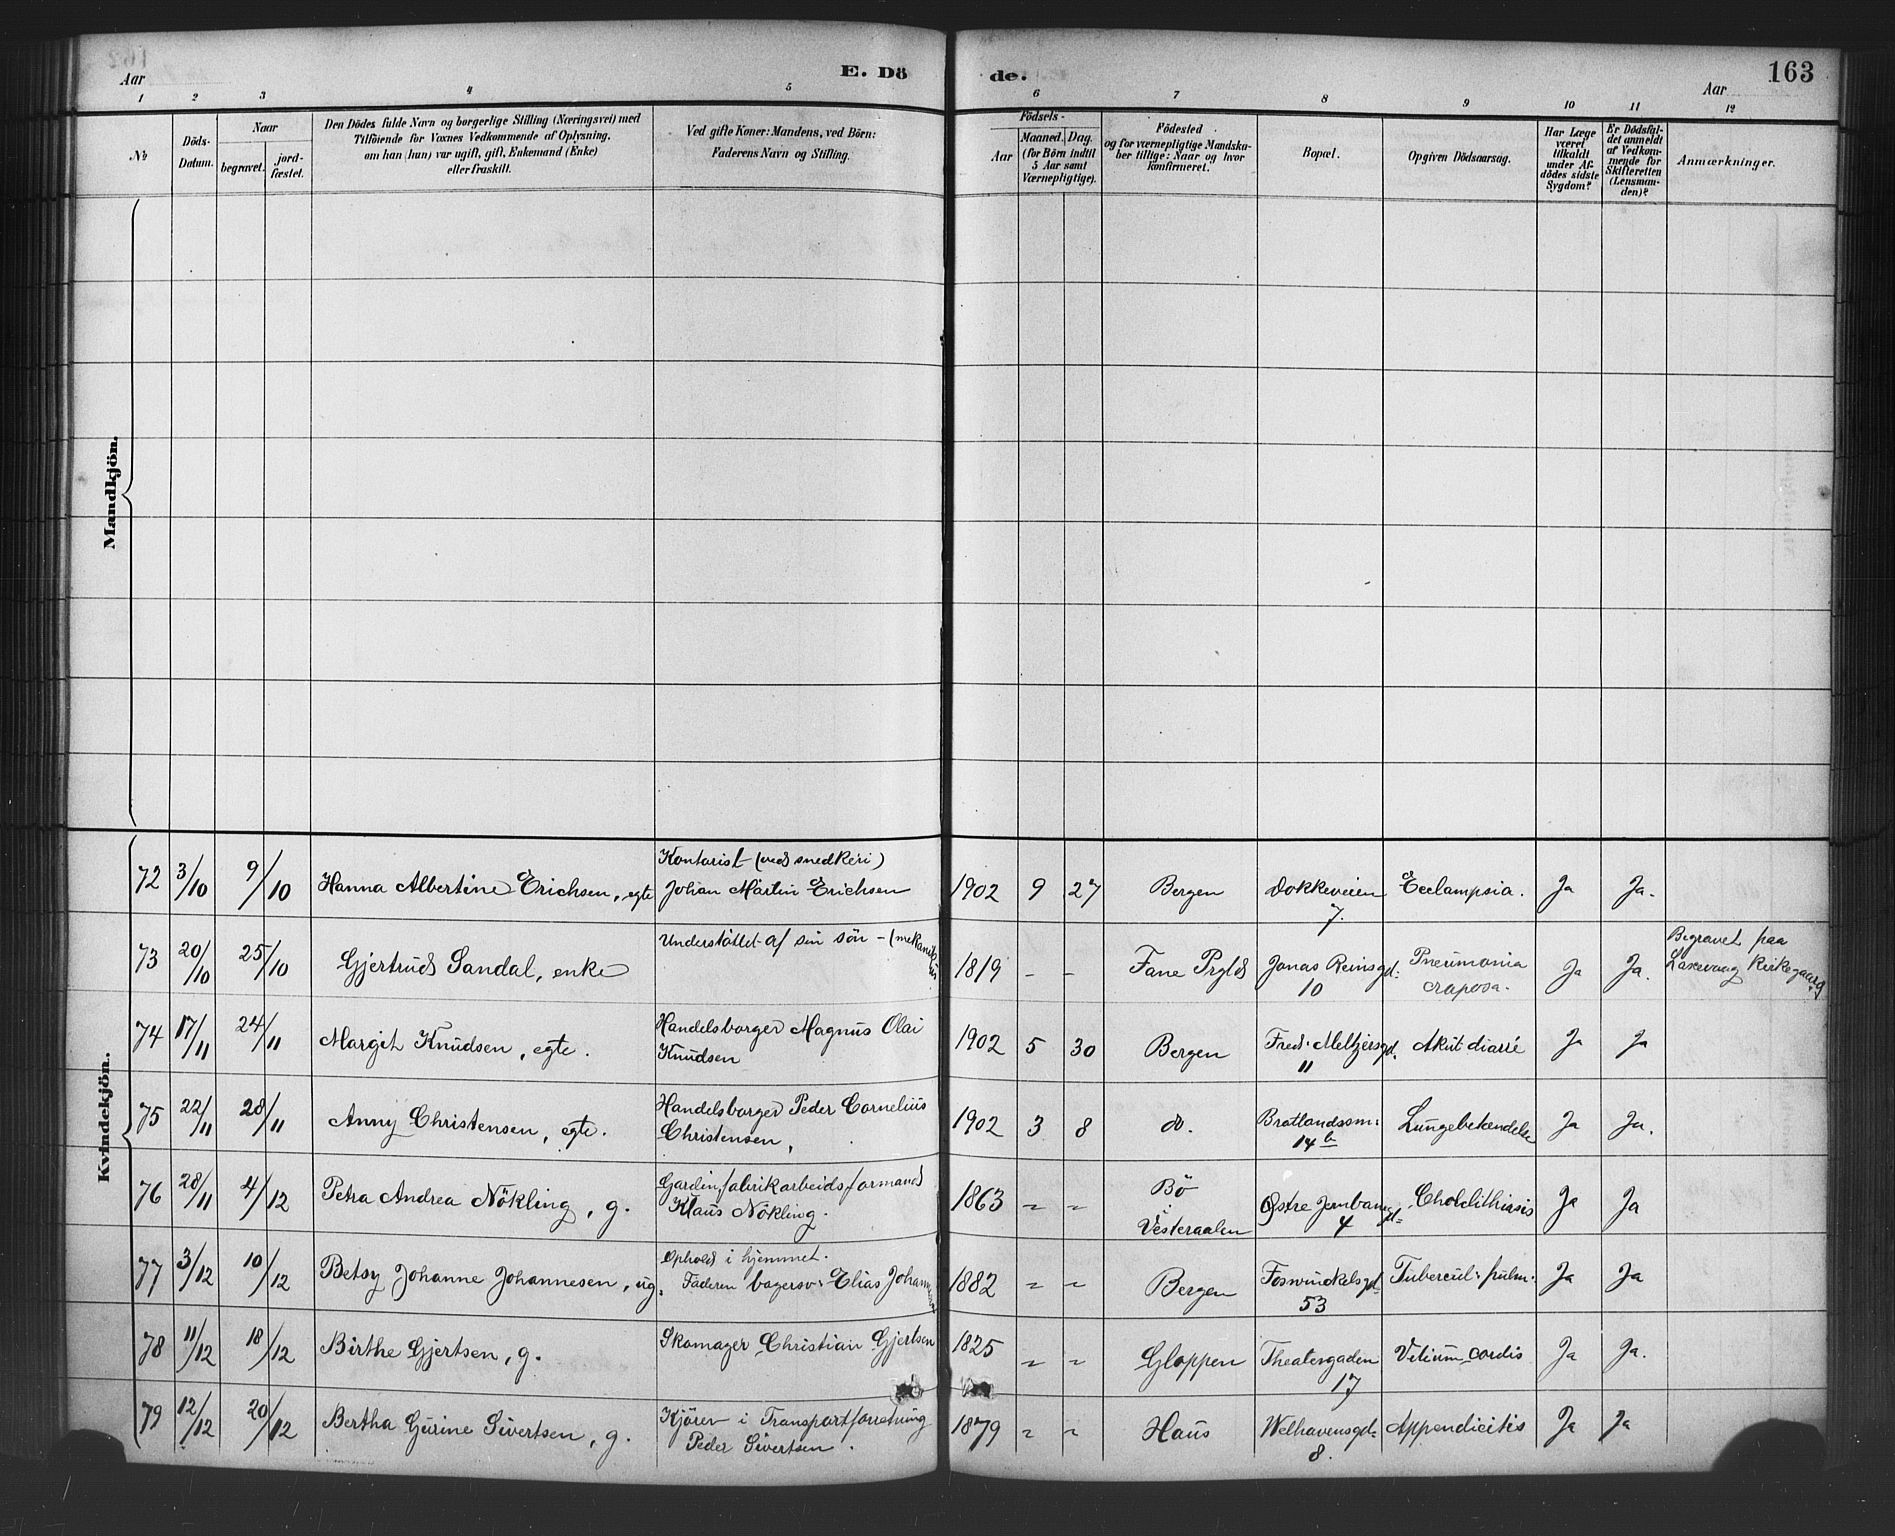 Aar
E. Dö
de.
Aar
163
1 2 3 4 5 6 7 8 9 10 11 12
№
Döds-
Datum.
Naar
begravet.
jord-
fæstet.
Den Dödes fulde Navn og borgerlige Stilling (Næringsvei) med
Tilföiende for Voxnes Vedkommende af Oplysning,
om han (hun) var ugift, gift, Enkemand (Enke)
eller fraskilt.
Ved gifte Koner: Mandens, ved Börn:
Faderens Navn og Stilling.
Födsels-
Aar
Maaned.
Dag.
(for Börn indtil
5 Aar samt
Værnepligtige).
Födested
og for værnepligtige Mandska-
ber tillige: Naar og hvor
konfirmeret.
Bopæl.
Opgiven Dödsaarsag.
Har Læge
været
tilkaldt
under Af-
dödes sidste
Sygdom?
Er Dödsfal-
det anmeldt
af Vedkom-
mende for
Skifteretten
(Lensman-
den)?
Anmærkninger.
Mandkjön.
Kvindekjön.
72 3/10 9/10 Hanna Albertine Erichsen, egte
Kontorist (ved snedkeri)
Johan Martin Erichsen
1902 9 27 Bergen Dokkeveien
7.
Eclampsia. Ja Ja.
73 20/10 25/10 Gjertrud Sandal, enke
Understöttet af sin sön - (mekaniker)
1819 - - Fane Prgld Jonas Reinsgd:
10
Pneumonia
crŭposa.
Ja Ja.
Begravet paa
Laxevaag Kirkegaard.
74 17/11 24/11 Margit Knudsen, egte.
Handelsborger Magnus Olai
Knudsen
1902 5 30 Bergen Fred. Meltzersgd.
11
Akut diarré Ja Ja
75 22/11 28/11 Anny Christensen, egte.
Handelsborger Peder Cornelius
Christensen,
1902 3 8 do. Bratlandssm:
14 b
Lungebetændelse Ja Ja.
76 28/11 4/12 Petra Andrea Nökling, g.
Gardinfabrikarbeidsformand
Klaus Nökling.
1863 " " Bö
i
Vesteraalen
Østre Jernbanegd=
4
Cholelithiasis Ja Ja
77 3/12 10/12 Betsy Johanne Johannesen, ug.
Ophold i hjemmet.
Faderen bagersv: Elias Johannesen
1882 " " Bergen Foswinckelsgd=
53
Tubercul: pulm. Ja Ja
78 11/12 18/12 Birthe Gjertsen, g.
Skomager Christian Gjertsen
1825 " " Gloppen Theatergaden
17
Vitium cordis Ja Ja.
79 12/12 20/12 Bertha Gurine Sivertsen, g.
Kjörer i Transportforretning
Peder Sivertsen.
1879 " " Haus Welhavensgd=
8.
Appendicitis Ja Ja